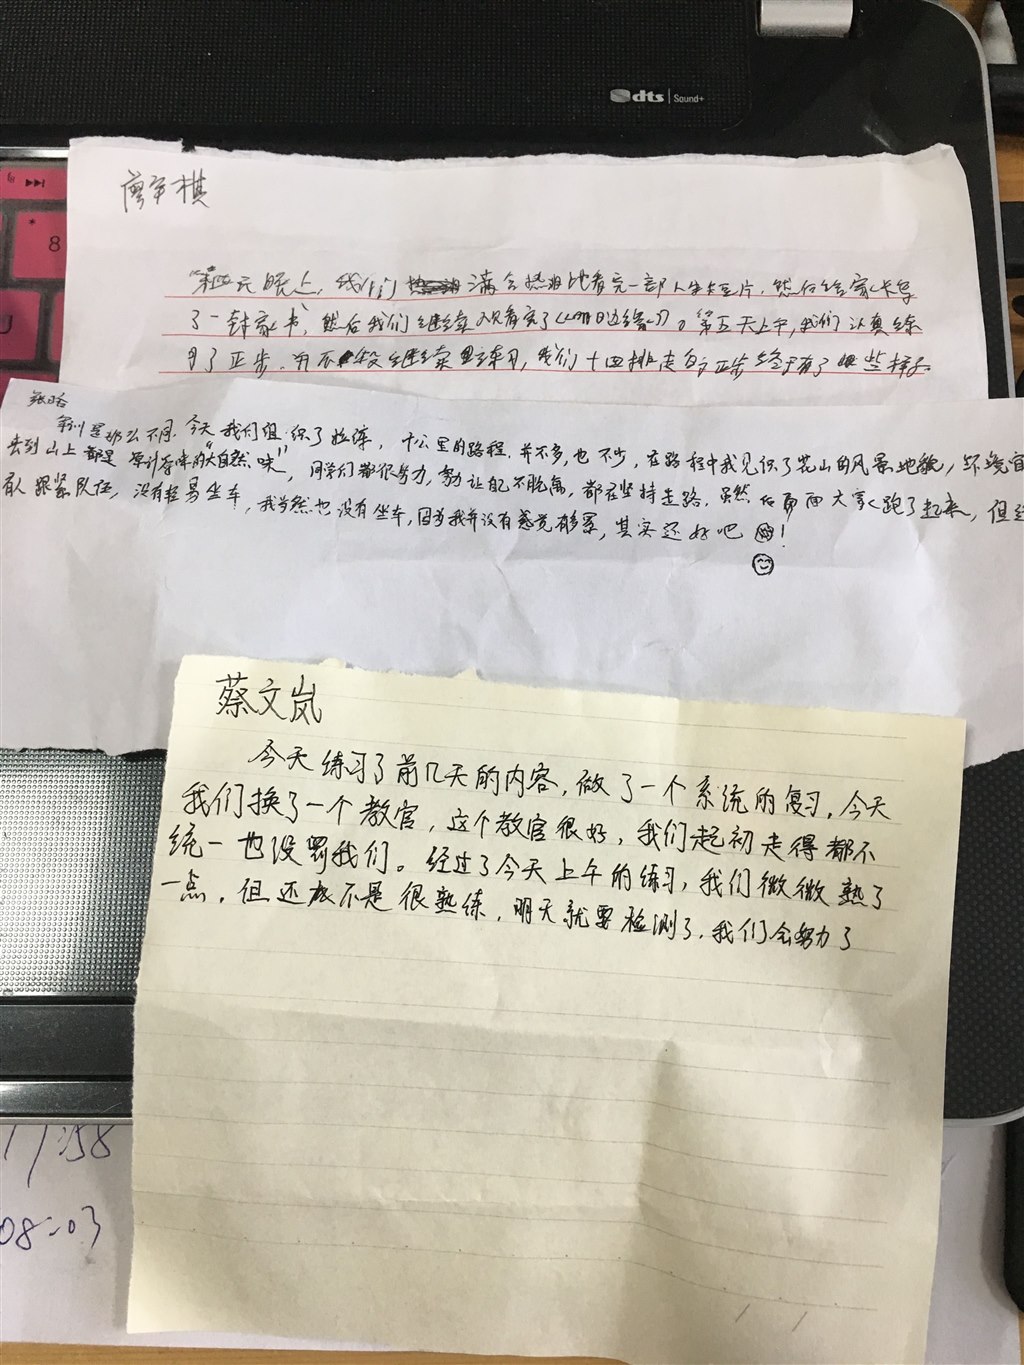 dts Sound+
8
第四天晚上,我们 满会热泪地看完一部人生短片,然后给家长写
了一封家书,然后我们继续观看完了 。第五天上午,我们认真练
习了正步, 继续 练习,我们十四排走的正步终于有了些样子。
张
今天我们组织了拉练,十公里的路程,并不多,也不少,在路程中我见识了 山的风景地貌,环境
去到山上都是 的"大自然味",同学们都很努力,努力让自己不脱离,都在坚持走路,虽然后面两大家跑了起来,但
有人跟紧队伍,没有轻易坐车,我当然也没有坐车,因为我并没有感觉有多累,其实还好吧!
蔡文岚
今天练习了前几天的内容,做了一个系统的复习,今天
我们换了一个教官,这个教官很好,我们起初走得都不
统一也没罚我们。经过了今天上午的练习,我们微微熟了
一点,但还不是很熟练,明天就要检测了,我们会努力了
11:58
08:03